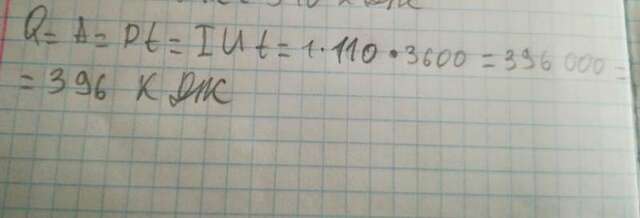 Q = A = Pt = I U t = 1·110·3600 = 396 000 =
= 396 К ДЖ